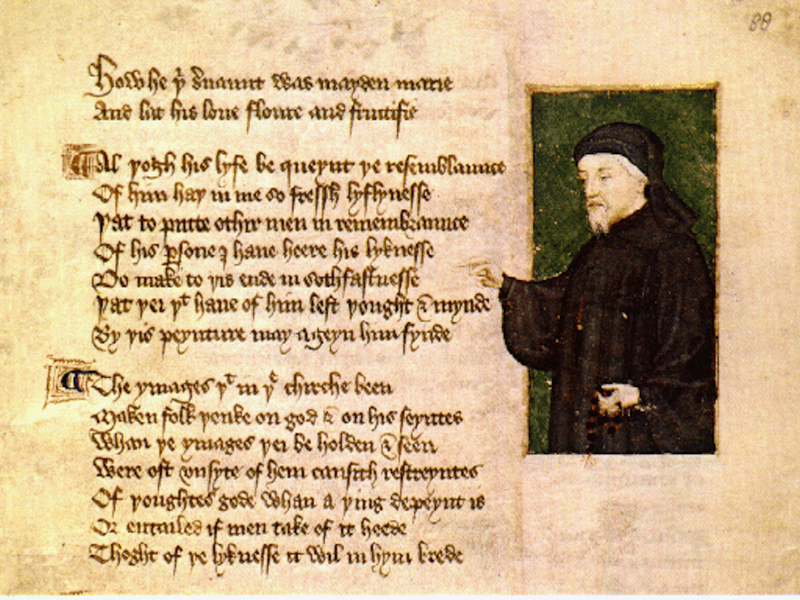 88
How he þͥ s̉uaunt was mayden marie
And lat his loue floure and fructifie
Al þogh his lyfe be queynt þe resemblaunce
Of him haþ in me so fressh lyflynesse
Þat to putte othir men in remembraunce
Of his ꝑsone I haue heere his lyknesse
Do make to þis ende in sothfastnesse
Þat þei þͭ haue of him left þought & mynde
By þis peynture may ageyn him fynde
The ymages þͭ in þͤ chirche been
Maken folk þenke on god & on his seyntes
Whan þe ymages þei be holden & seen
Were oft vnsyte of hem causith restreyntes
Of þoughtes gode whan a þing depeynt is
Or entailed if men take of it heede
Thoght of þe lyknesse it wil in hym brede